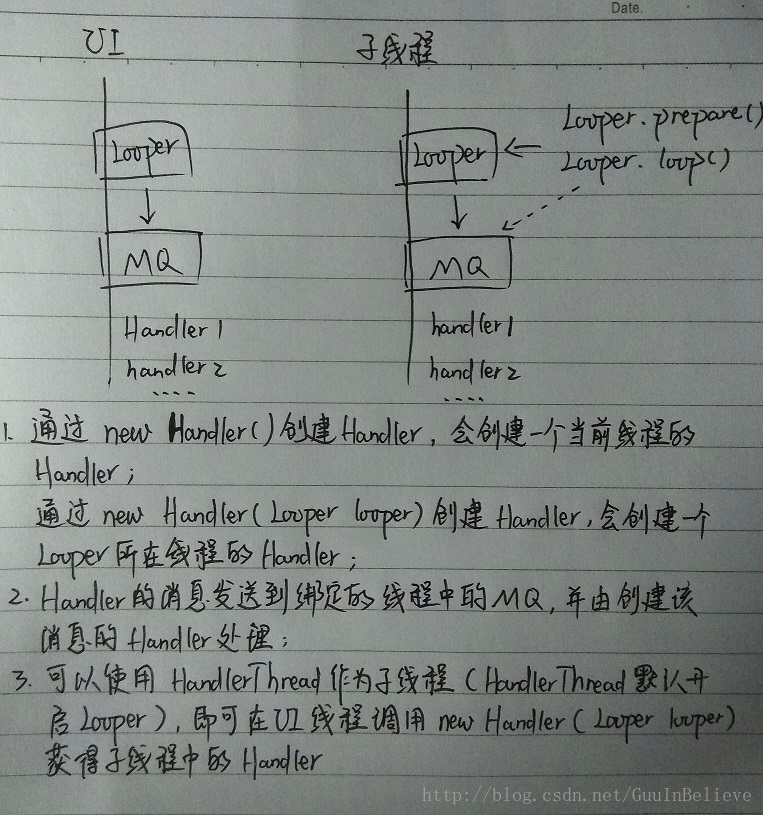 Date.
UI 子线程
Looper Looper Looper.prepare()
Looper.loop()
MQ MQ
Handler1 handler1
handler2 handler2
.... ....
1. 通过 new Handler()创建Handler,会创建一个当前线程的
Handler;
通过 new Handler(Looper looper)创建Handler,会创建一个
Looper所在线程的Handler;
2. Handler的消息发送到绑定的线程中的MQ,并由创建该
消息的Handler处理;
3. 可以使用 HandlerThread作为子线程(HandlerThread默认开
启Looper),即可在UI线程调用new Handler(Looper looper)
获得子线程中的Handler
http://blog.csdn.net/GuuInBelieve